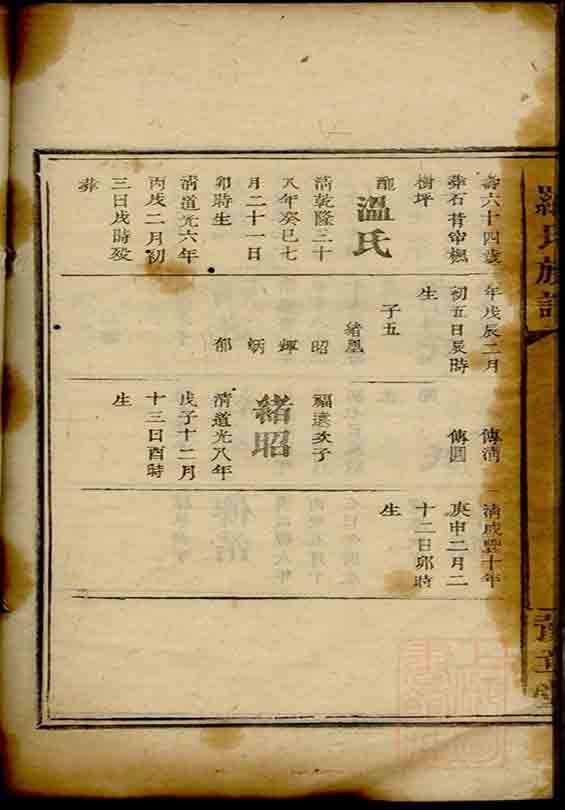 羅氏族譜
豫章堂
壽六十四歲
葬石背帘楓
樹坪
配
溫氏
清乾隆三十
八年癸巳七
月二十一日
卯時生
清道光六年
丙戌二月初
三日戌時歿
葬
年戊辰二月
初五日辰時
生
子五
緒鳳
昭
輝
炳
郁
傳清
傳圓
福遠次子
緒昭
清道光八年
戊子十二月
十三日酉時
生
清咸豐十年
庚申二月二
十二日卯時
生